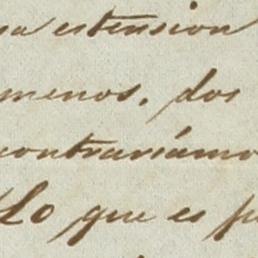 na estension
menos. dos
contrariámo
Lo que es p